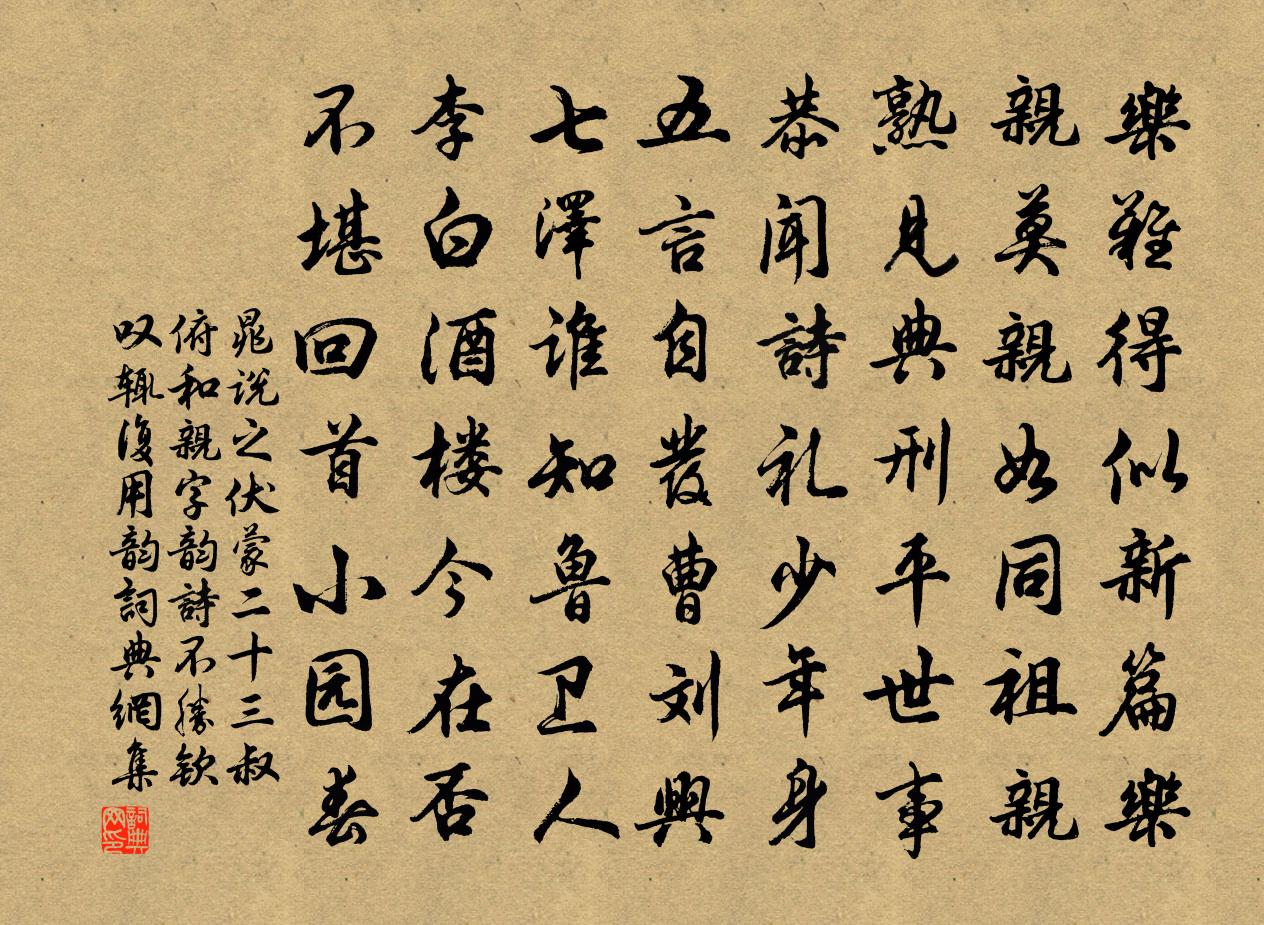 樂難得似新篇樂
親莫親如同祖親
熟見典刑平世事
恭聞詩礼少年身
五言自發曹刘興
七澤谁知鲁卫人
李白酒楼今在否
不堪回首小园春
晁说之伏蒙二十三叔
俯和親字韵詩不勝欽
叹辄復用韵詞典網集
詞典网印